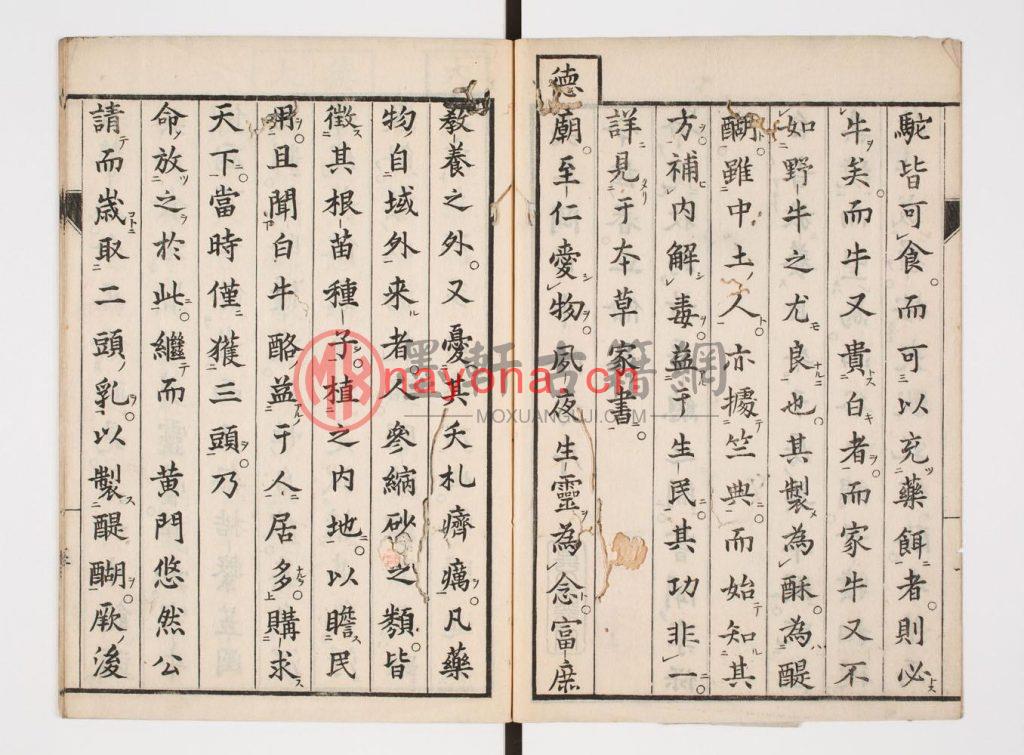 駝皆可食而可以充藥餌者則必
牛矣而牛又貴白者而家牛又不
如野牛之尤良也其製為酥為醍
醐雖中土人亦據竺典而始知其
方補内解毒益于生民其功非一
詳見于本草家書
德廟至仁愛物夙夜生靈為念富庶
教養之外又憂其夭札癠癘凡藥
物自域外来者人參縮砂之類皆
徴其根苗種子植之内地以瞻民
用且聞白牛酪益于人居多購求
天下當時僅獲三頭乃
命放之於此繼而黄門悠然公
請而歳取二頭乳以製醍醐厥後
墨軒古籍網
nayona.cn
MOXUANGUJI.COM